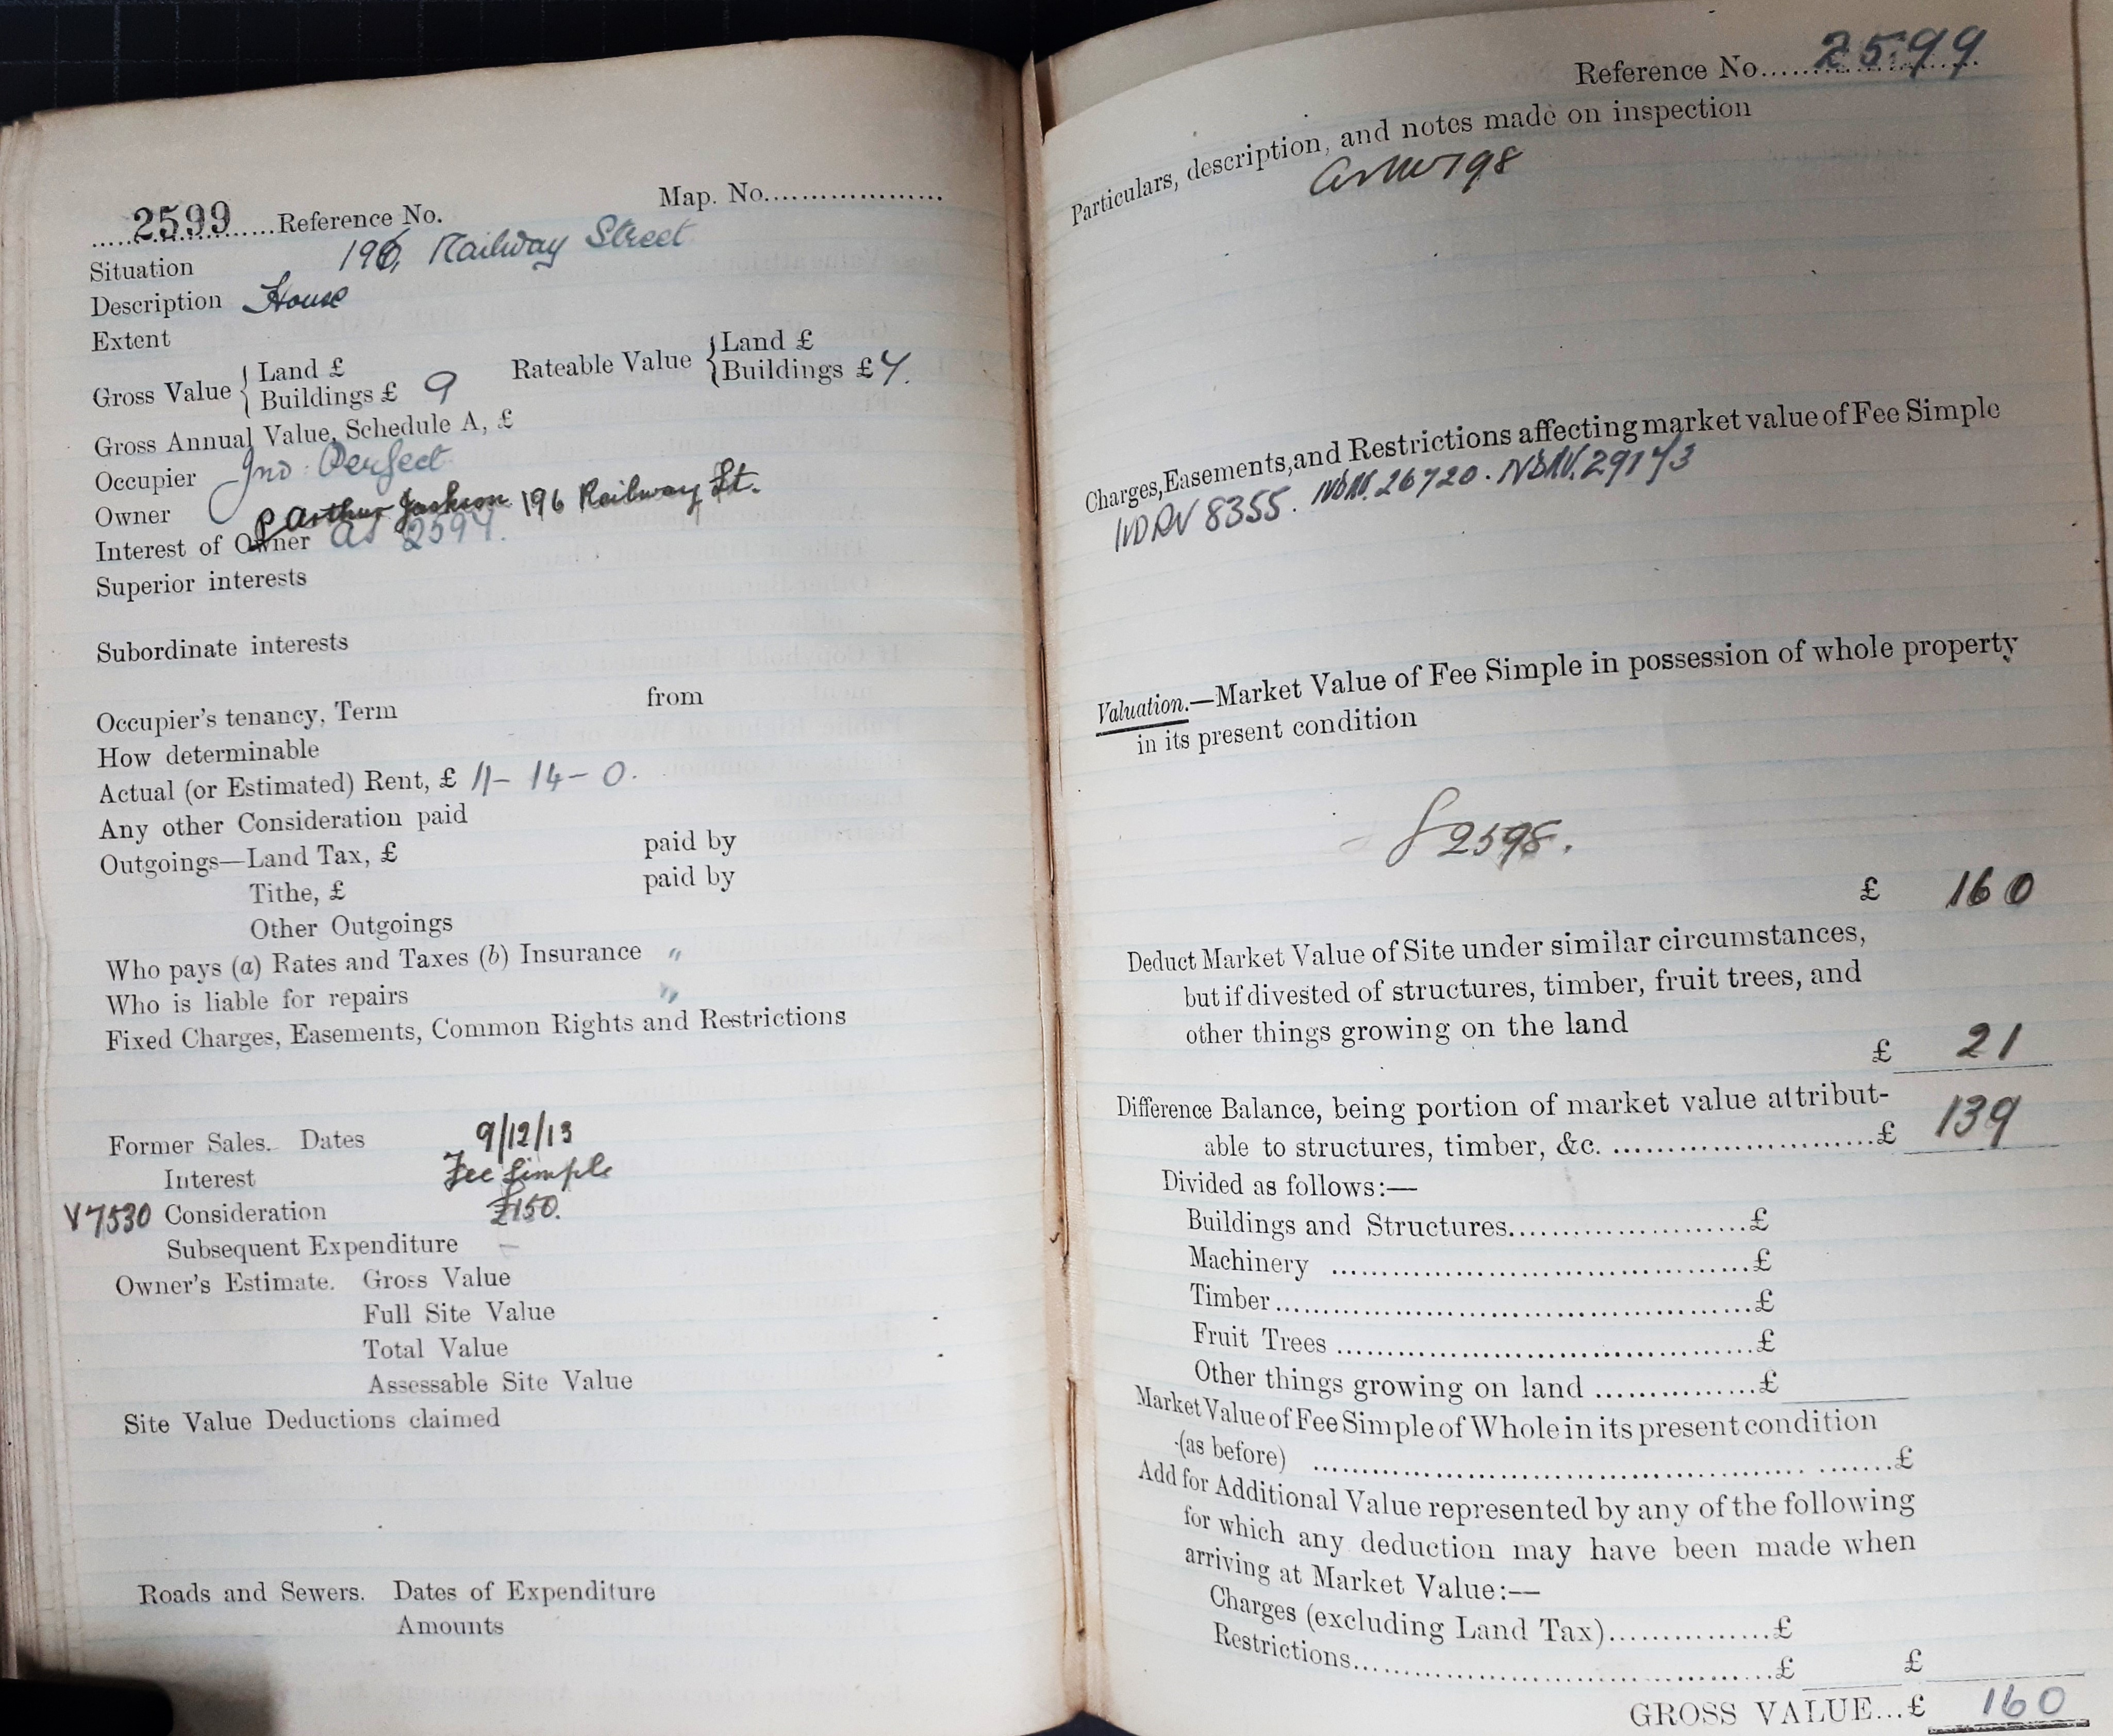 2599 Reference No. Map. No.
Situation 196, Railway Street
Description House
Extent
Gross Value { Land £
Buildings £ 9
Rateable Value { Land £
Buildings £ 7.
Gross Annual Value, Schedule A, £
Occupier Jno. Perfect
Owner Arthur Jackson 196 Railway St.
Interest of Owner as 2594.
Superior interests
Subordinate interests
Occupier's tenancy, Term from
How determinable
Actual (or Estimated) Rent, £ 11-14-0.
Any other Consideration paid
Outgoings—Land Tax, £ paid by
Tithe, £ paid by
Other Outgoings
Who pays (a) Rates and Taxes (b) Insurance "
Who is liable for repairs "
Fixed Charges, Easements, Common Rights and Restrictions
Former Sales. Dates 9/12/13
Interest Fee Simple
V7530 Consideration £150.
Subsequent Expenditure —
Owner's Estimate. Gross Value
Full Site Value
Total Value
Assessable Site Value
Site Value Deductions claimed
Roads and Sewers. Dates of Expenditure
Amounts
Reference No. 2599
Particulars, description, and notes made on inspection
198
Charges, Easements, and Restrictions affecting market value of Fee Simple
NDRV 8355. NDRV. 26720. NDRV. 29173
Valuation.—Market Value of Fee Simple in possession of whole property
in its present condition
2598.
£ 160
Deduct Market Value of Site under similar circumstances,
but if divested of structures, timber, fruit trees, and
other things growing on the land
£ 21
Difference Balance, being portion of market value attribut-
able to structures, timber, &c. £ 139
Divided as follows:—
Buildings and Structures £
Machinery £
Timber £
Fruit Trees £
Other things growing on land £
Market Value of Fee Simple of Whole in its present condition
(as before) £
Add for Additional Value represented by any of the following
for which any deduction may have been made when
arriving at Market Value:—
Charges (excluding Land Tax) £
Restrictions £ £
GROSS VALUE... £ 160